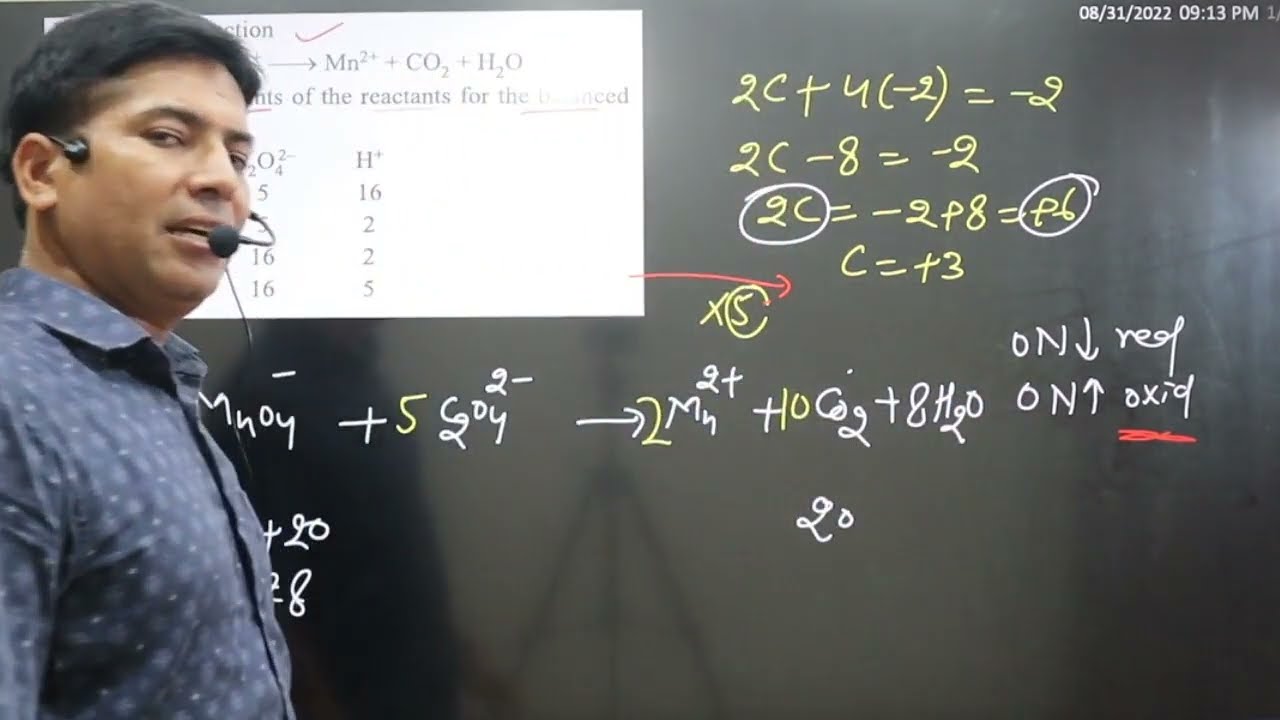 08/31/2022 09:13 PM 1/
ction
⟶ Mn²⁺ + CO₂ + H₂O
nts of the reactants for the balanced
₂O₄²⁻ H⁺
5 16
5 2
16 2
16 5
2C + 4(-2) = -2
2C - 8 = -2
2C = -2+8 = +6
C = +3
×5
ON↓ red
ON↑ oxid
MnO₄⁻ + 5 C₂O₄²⁻ ⟶ 2Mn²⁺ + 10CO₂ + 8H₂O
+20
20
8